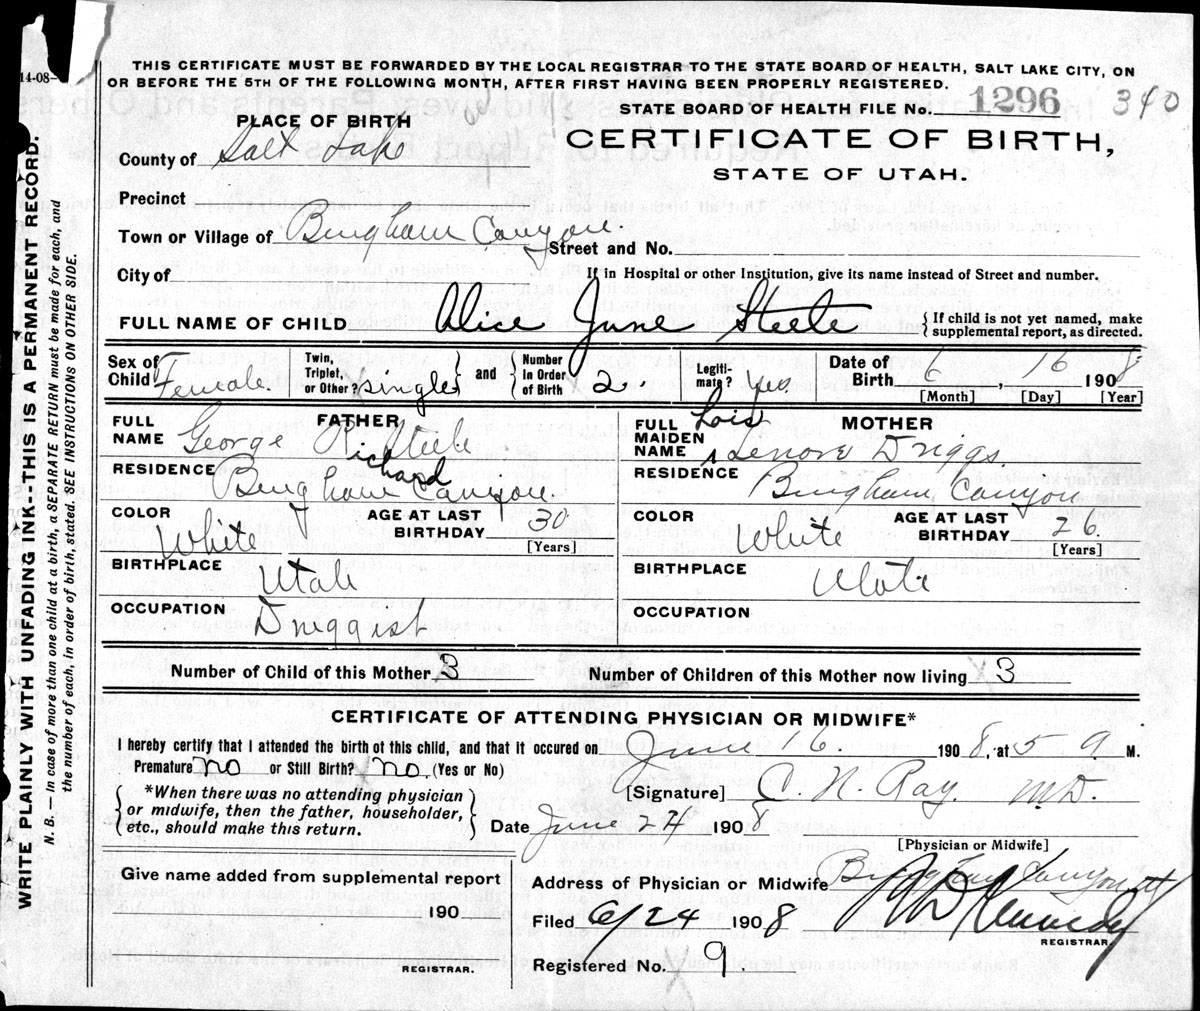 14-08-
THIS CERTIFICATE MUST BE FORWARDED BY THE LOCAL REGISTRAR TO THE STATE BOARD OF HEALTH, SALT LAKE CITY, ON
OR BEFORE THE 5TH OF THE FOLLOWING MONTH, AFTER FIRST HAVING BEEN PROPERLY REGISTERED.
STATE BOARD OF HEALTH FILE No. 1296 340
PLACE OF BIRTH
CERTIFICATE OF BIRTH,
STATE OF UTAH.
County of Salt Lake
Precinct
Town or Village of Bingham Canyon.
Street and No.
City of
If in Hospital or other Institution, give its name instead of Street and number.
FULL NAME OF CHILD Alice June Steele
{ If child is not yet named, make supplemental report, as directed.
Sex of Child Female. Twin, Triplet, or Other? single and Number in Order of Birth 2. Legiti-mate? Yes. Date of Birth 6, 16 1908
[Month] [Day] [Year]
FATHER
FULL NAME George Richard Steele
RESIDENCE Bingham Canyon.
COLOR White AGE AT LAST BIRTHDAY 30
[Years]
BIRTHPLACE Utah
OCCUPATION Druggist
MOTHER
FULL MAIDEN NAME Lois Lenore Driggs.
RESIDENCE Bingham Canyon
COLOR White AGE AT LAST BIRTHDAY 26.
[Years]
BIRTHPLACE Utah
OCCUPATION
Number of Child of this Mother 3 Number of Children of this Mother now living 3
CERTIFICATE OF ATTENDING PHYSICIAN OR MIDWIFE*
I hereby certify that I attended the birth of this child, and that it occured on June 16. 1908, at 5 9 M.
Premature? no or Still Birth? no. (Yes or No)
*When there was no attending physician
or midwife, then the father, householder,
etc., should make this return.
[Signature] C. N. Ray. M.D.
Date June 24 1908
[Physician or Midwife]
Give name added from supplemental report
190
REGISTRAR.
Address of Physician or Midwife Bingham Canyon
Filed 6/24 1908 Kennedy
REGISTRAR
Registered No. 9
WRITE PLAINLY WITH UNFADING INK--THIS IS A PERMANENT RECORD.
N. B.— In case of more than one child at a birth, a SEPARATE RETURN must be made for each, and
the number of each, in order of birth, stated. SEE INSTRUCTIONS ON OTHER SIDE.